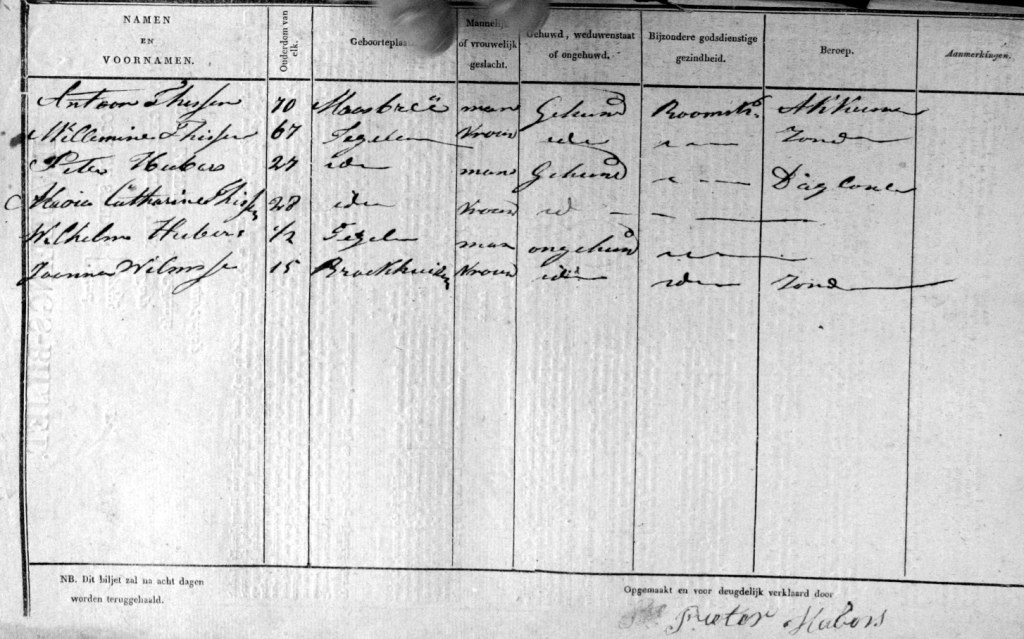 NAMEN EN VOORNAMEN. Ouderdom van elk. Geboorteplaa Mannelijk of vrouwelijk geslacht. Gehuwd, weduwenstaat of ongehuwd. Bijzondere godsdienstige gezindheid. Beroep. Aanmerkingen.
Antoon Thissen 70 Maasbreë man Gehuwd Roomsch
Willemine Thissen 67 Tegelen vrouw idem Zonder
Peter Hubers 27 idem man Gehuwd
Maria Catharine Thissen 28 idem vrouw id
Wilhelm Hubers 1/2 Tegelen man ongehuwd
Joenna Wilmsse 15 Broekhuizen vrouw idem idem Zonder
NB. Dit biljet zal na acht dagen
worden teruggehaald.
Opgemaakt en voor deugdelijk verklaard door
Pieter Hubers
CS-BILJET